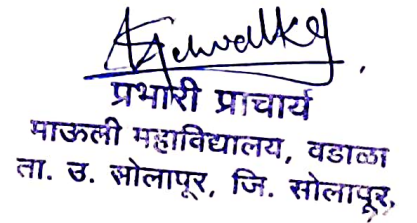 प्रभारी प्राचार्य
माऊली महाविद्यालय, वडाळा
ता. उ. सोलापूर, जि. सोलापूर.